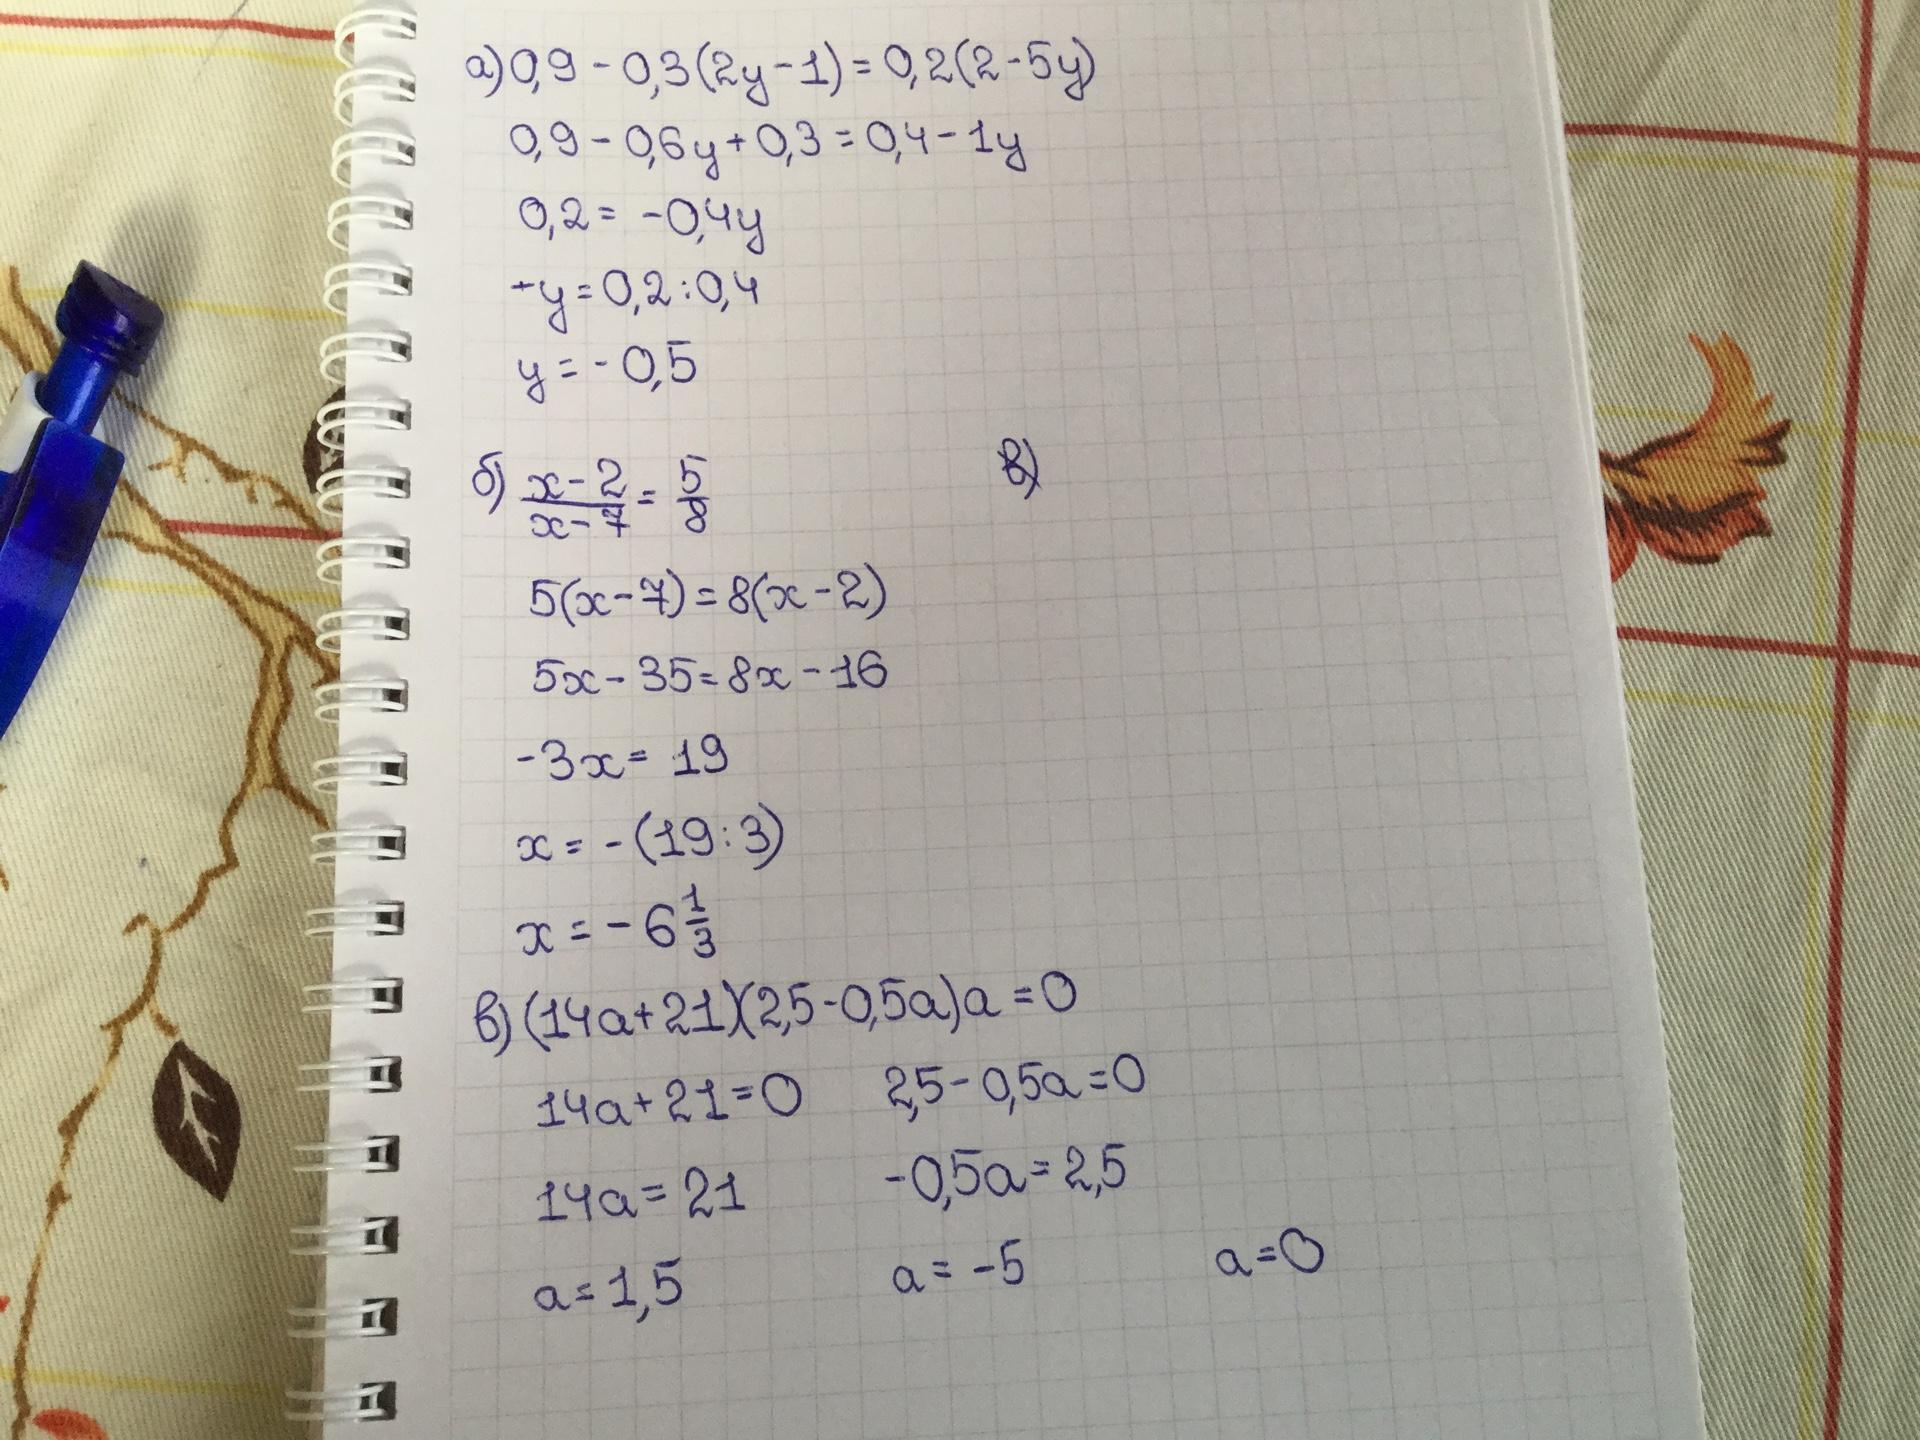 а) 0,9 - 0,3(2y - 1) = 0,2(2 - 5y)
0,9 - 0,6y + 0,3 = 0,4 - 1y
0,2 = -0,4y
-y = 0,2 : 0,4
y = -0,5
б) (x - 2)/(x - 7) = 5/8
в)
5(x - 7) = 8(x - 2)
5x - 35 = 8x - 16
-3x = 19
x = -(19 : 3)
x = -6 1/3
в) (14a + 21)(2,5 - 0,5a)a = 0
14a + 21 = 0 2,5 - 0,5a = 0
14a = 21 -0,5a = 2,5
a = 1,5 a = -5 a = 0